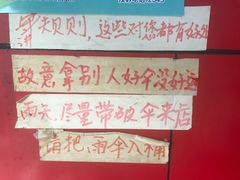 罪规则，这些对您都有好处
故意拿别人好伞没好运
雨天，尽量带破伞来店
请把，雨伞入桶